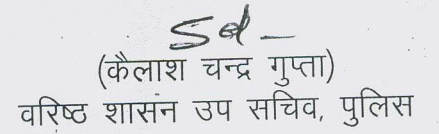 Sd-
(कैलाश चन्द्र गुप्ता)
वरिष्ठ शासन उप सचिव, पुलिस